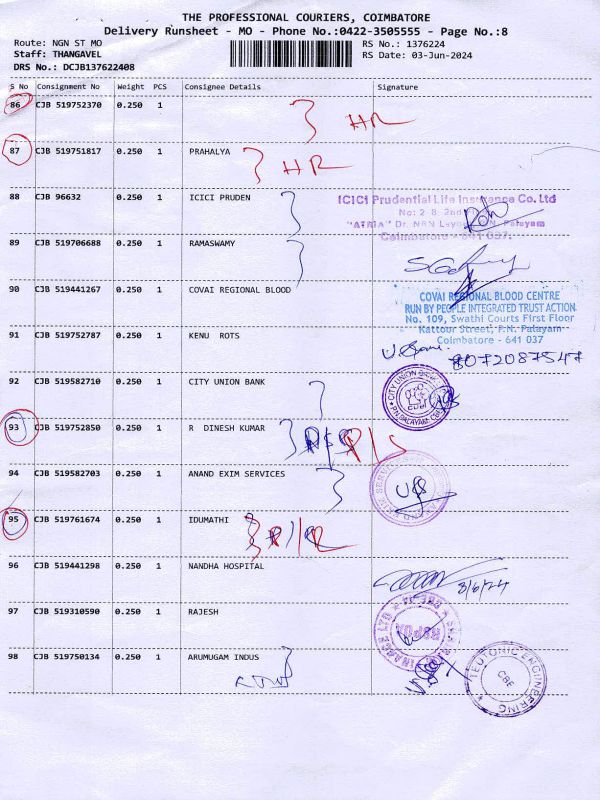 THE PROFESSIONAL COURIERS, COIMBATORE
Delivery Runsheet - MO - Phone No.:0422-3505555 - Page No.:8
Route: NGN ST MO RS No.: 1376224
Staff: THANGAVEL RS Date: 03-Jun-2024
DRS No.: DCJB137622408
S No Consignment No Weight PCS Consignee Details Signature
86 CJB 519752370 0.250 1 HR
87 CJB 519751817 0.250 1 PRAHALYA HR
88 CJB 96632 0.250 1 ICICI PRUDEN
ICICI Prudential Life Insurance Co. Ltd
No: 2-8, 2nd
"ATRIA" Dr. NRN Layout Palayam
Coimbatore - 641 037.
89 CJB 519706688 0.250 1 RAMASWAMY
90 CJB 519441267 0.250 1 COVAI REGIONAL BLOOD
COVAI REGIONAL BLOOD CENTRE
RUN BY PEOPLE INTEGRATED TRUST ACTION
No. 109, Swathi Courts First Floor
Kattoor Street, P.N. Palayam
Coimbatore - 641 037
91 CJB 519752787 0.250 1 KENU ROTS
8072087547
92 CJB 519582710 0.250 1 CITY UNION BANK
CITY UNION
93 CJB 519752850 0.250 1 R DINESH KUMAR
94 CJB 519582703 0.250 1 ANAND EXIM SERVICES
95 CJB 519761674 0.250 1 IDUMATHI
96 CJB 519441298 0.250 1 NANDHA HOSPITAL
3/6/24
97 CJB 519310590 0.250 1 RAJESH
98 CJB 519750134 0.250 1 ARUMUGAM INDUS
TEUTONIC ENGINEERING
CBE